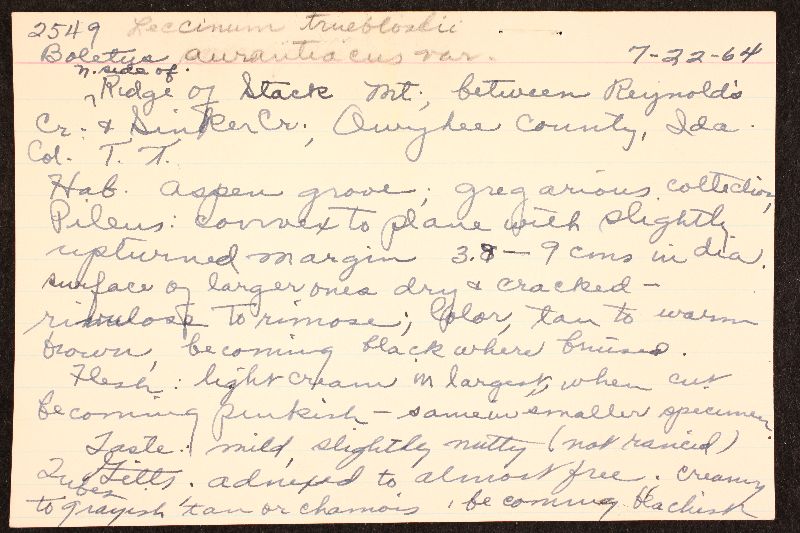 2549 Leccinum truebloodii
Boletus aurantiacus var. 7-22-64
n. side of
Ridge of Stack Mt., between Reynolds
Cr. & Sinker Cr., Owyhee County, Ida.
Col. T. T.
Hab. aspen grove; gregarious collection,
Pileus: convex to plane with slightly
upturned margin 3.8 - 9 cms in dia.
surface of larger ones dry & cracked -
rimulose to rimose; Color, tan to warm
brown, becoming black where bruised.
Flesh: light cream in largest, when cut
becoming pinkish - same in smaller specimen.
Taste: mild, slightly nutty (not rancid)
Tubes Gills. adnexed to almost free. creamy
to grayish tan or chamois, becoming blackish